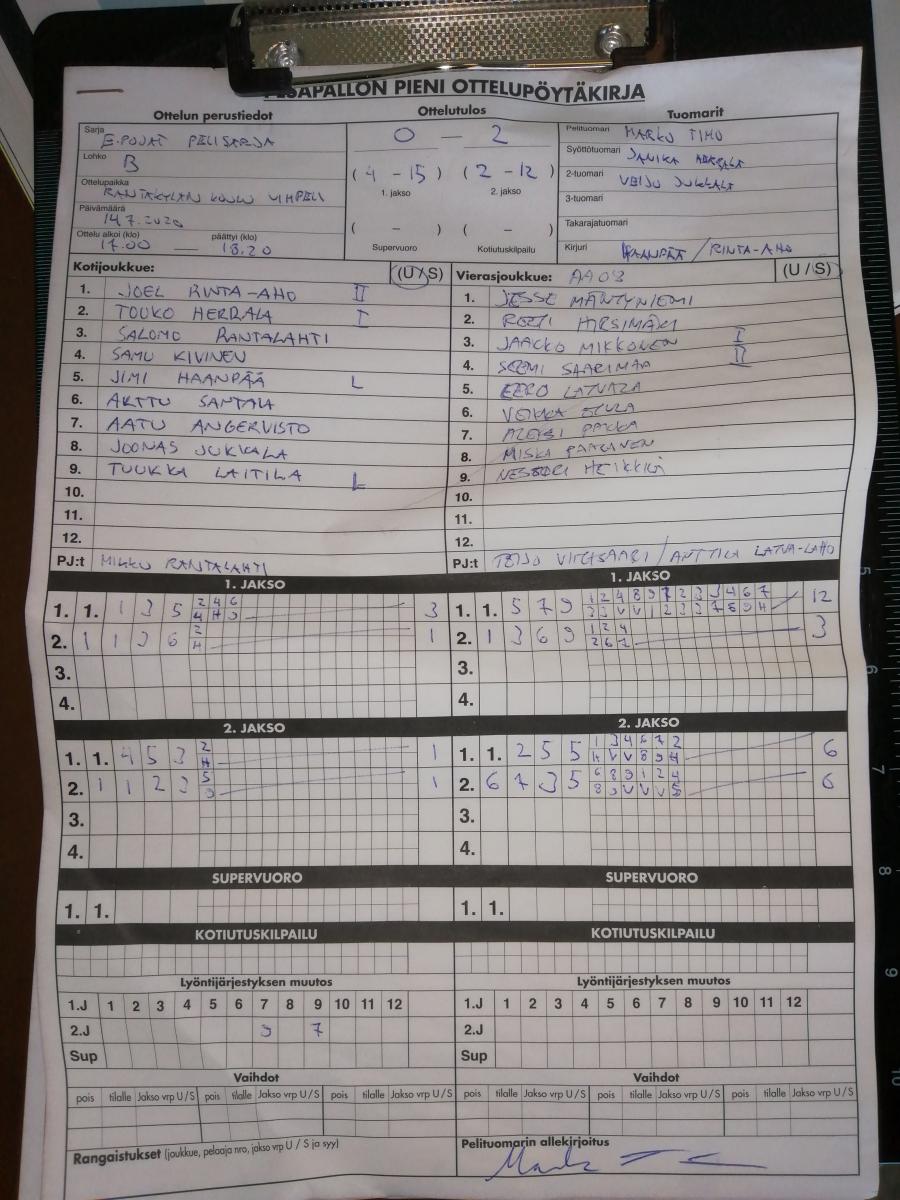 PESÄPALLON PIENI OTTELUPÖYTÄKIRJA
Ottelun perustiedot
Ottelutulos
Tuomarit
Sarja E-POJAT PELISARJA
Lohko B
Ottelupaikka RANTAKYLÄN KOULU VIMPELI
Päivämäärä 14.7.2020
Ottelu alkoi (klo) 17.00 — päättyi (klo) 18.20
0 — 2
( 4 - 15 ) ( 2 - 12 )
1. jakso 2. jakso
( - ) ( - )
Supervuoro Kotiutuskilpailu
Pelituomari MARKO TIMO
Syöttötuomari JANIKA
2-tuomari VEIJO JUKKALA
3-tuomari
Takarajatuomari
Kirjuri HAANPÄÄ / RINTA-AHO
Kotijoukkue: (U/S)
1. JOEL RINTA-AHO II
2. TOUKO HERRALA I
3. SALOMO RANTALAHTI
4. SAMU KIVINEN
5. JIMI HAANPÄÄ L
6. ARTTU SANTALA
7. AATU ANGERVISTO
8. JOONAS JUKKALA
9. TUUKKA LAITILA L
10.
11.
12.
PJ:t MIKKO RANTALAHTI
Vierasjoukkue: AA03 (U / S)
1. JESSE MÄNTYNIEMI
2. HIRSIMÄKI
3. JAAKKO MIKKONEN I
4. SEEMI SAARIMAA II
5. EERO LATVALA
6. VEIKKA
7. ALEKSI
8. MISKA
9. HEIKKILÄ
10.
11.
12.
PJ:t / ANTTILA LATVA-LAHO
1. JAKSO
1. 1. 1 3 5 2 4 6 3
4 H 9
2. 1 1 3 6 2 1
H
3.
4.
1. JAKSO
1. 1. 5 7 9 1 2 4 8 9 1 2 3 3 4 6 7 12
2. 1 3 6 9 1 2 4 3
2 6 7
3.
4.
2. JAKSO
1. 1. 4 5 3 2 1
H
2. 1 1 2 3 5 1
9
3.
4.
2. JAKSO
1. 1. 2 5 5 1 3 4 6 7 2 6
H V V 8 9 4
2. 6 7 3 5 6 8 9 1 2 4 6
8 9 V V V 5
3.
4.
SUPERVUORO
1. 1.
SUPERVUORO
1. 1.
KOTIUTUSKILPAILU
KOTIUTUSKILPAILU
Lyöntijärjestyksen muutos
1.J 1 2 3 4 5 6 7 8 9 10 11 12
2.J 9 7
Sup
Lyöntijärjestyksen muutos
1.J 1 2 3 4 5 6 7 8 9 10 11 12
2.J
Sup
Vaihdot
pois tilalle Jakso vrp U / S pois tilalle Jakso vrp U / S pois tilalle Jakso vrp U / S
Vaihdot
pois tilalle Jakso vrp U / S pois tilalle Jakso vrp U / S pois tilalle Jakso vrp U / S
Rangaistukset (joukkue, pelaaja nro, jakso vrp U / S ja syy)
Pelituomarin allekirjoitus
5
6
7
8
9
10